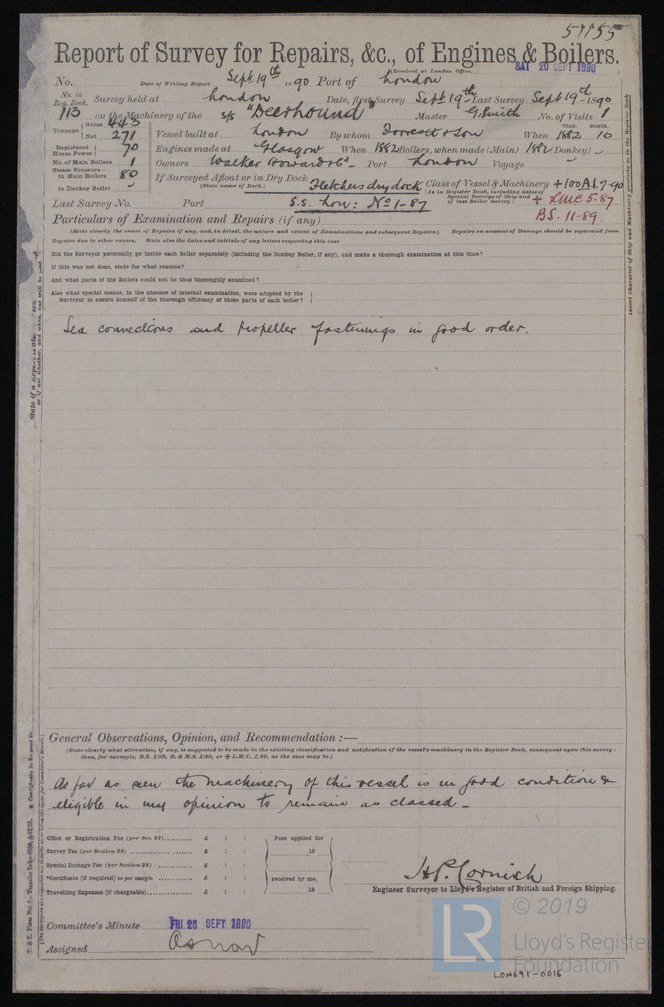 57155
Report of Survey for Repairs, &c., of Engines & Boilers.
(Received at London Office, SAT 20 SEPT 1890
No. Date of Writing Report Sept 19th 1890 Port of London
No. in Reg. Book. 113 Survey held at London Date, first Survey Sept 19th Last Survey Sept 19th 1890
on the Machinery of the s/s "Deerhound" Master G. Smith No. of Visits 1
Tonnage Gross 443 Net 271 Vessel built at London By whom & Son When 1882 YEAR. 10 MONTH.
Registered Horse Power 70 Engines made at Glasgow When 1882 Boilers, when made (Main) 1882 (Donkey)
No. of Main Boilers 1 Owners Walker Howard & Co Port London Voyage
Steam Pressure— in Main Boilers 80 If Surveyed Afloat or in Dry Dock Fletchers dry dock Class of Vessel & Machinery +100A1.7.90
(State name of Dock.) (As in Register Book, including dates of Special Surveys of Ship and of last Boiler Survey.) + LMC 5.87
in Donkey Boiler
Last Survey No. Port S.S. Lon: No 1-87 BS. 11-89
Particulars of Examination and Repairs (if any)
(State clearly the cause of Repairs if any, and, in detail, the nature and extent of Examinations and subsequent Repairs.) Repairs on account of Damage should be separated from
Repairs due to other causes. State also the dates and initials of any letters respecting this case
Did the Surveyor personally go inside each Boiler separately (including the Donkey Boiler, if any), and make a thorough examination at this time?
If this was not done, state for what reasons?
And what parts of the Boilers could not be thus thoroughly examined?
Also what special means, in the absence of internal examination, were adopted by the
Surveyor to assure himself of the thorough efficiency of those parts of each boiler?
Sea connections and Propeller fastenings in good order.
General Observations, Opinion, and Recommendation :—
(State clearly what alteration, if any, is suggested to be made in the existing classification and notification of the vessel's machinery in the Register Book, consequent upon this survey;
thus, for example, B.S. 1/89, B. & M.S. 1/89, or L.M.C. 1/89, as the case may be.)
As far as seen the machinery of this vessel is in good condition &
eligible in my opinion to remain as classed.
Office or Registration Fee (per Sec. 27) £ : : Fees applied for
Survey Fee (per Section 28) £ : : 18
Special Damage Fee (per Section 28) £ : :
*Certificate (if required) as per margin £ : : received by me,
Travelling Expenses (if chargeable) £ : : 18
H.P. Cornish
Engineer Surveyor to Lloyd's Register of British and Foreign Shipping.
Committee's Minute FRI 26 SEPT 1890
Assigned As now
LR © 2019
Lloyd's Register
Foundation
LON691-0016